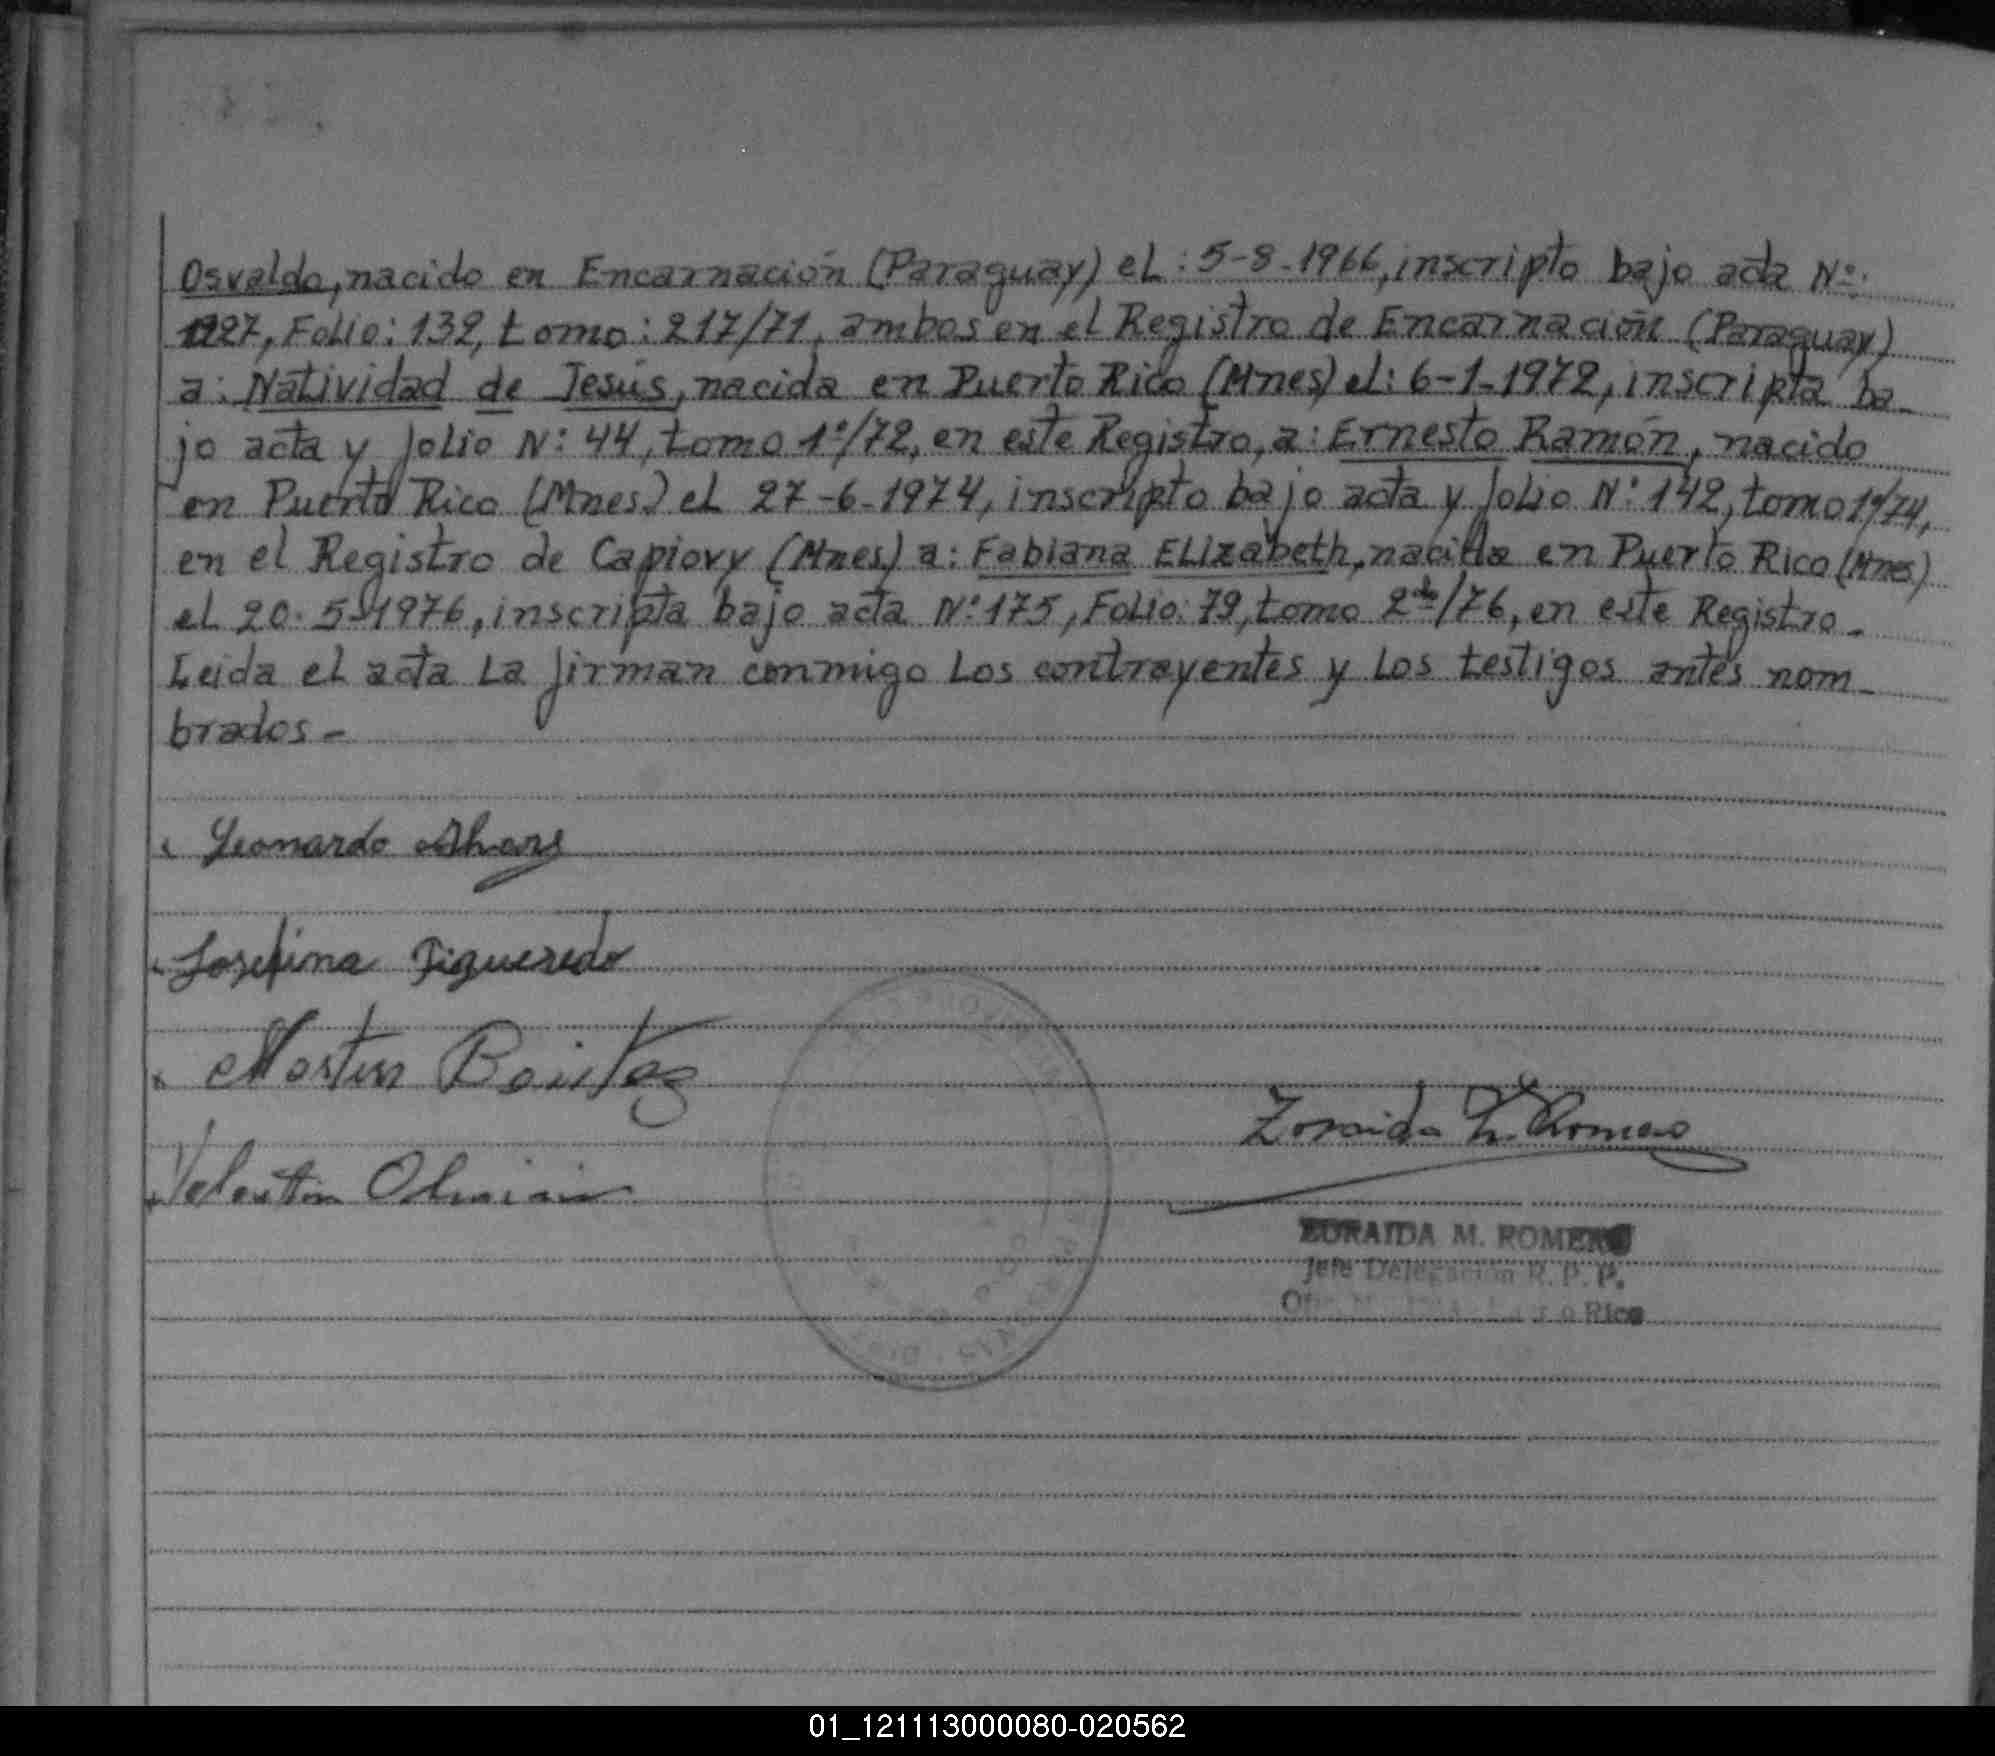 Osvaldo, nacido en Encarnación (Paraguay) el : 5-8-1966, inscripto bajo acta Nº:
1227, Folio: 132, tomo: 217/71, ambos en el Registro de Encarnación (Paraguay)
a: Natividad de Jesús, nacida en Puerto Rico (Mnes) el: 6-1-1972, inscripta ba-
jo acta y folio Nº: 44, tomo 1º/72, en este Registro, a: Ernesto Ramón, nacido
en Puerto Rico (Mnes) el 27-6-1974, inscripto bajo acta y folio Nº: 142, tomo 1º/74,
en el Registro de Capiovy (Mnes) a: Fabiana Elizabeth, nacida en Puerto Rico (Mnes)
el 20-5-1976, inscripta bajo acta Nº: 175, Folio: 79, tomo 2do/76, en este Registro.
Leida el acta la firman conmigo los contrayentes y los testigos antes nom-
brados-
Leonardo
Josefina Figueredo
Martin Benitez
Zoraida M. Romero
ZORAIDA M. ROMERO
Jefe Delegación R. P. P.
Rico
01_121113000080-020562